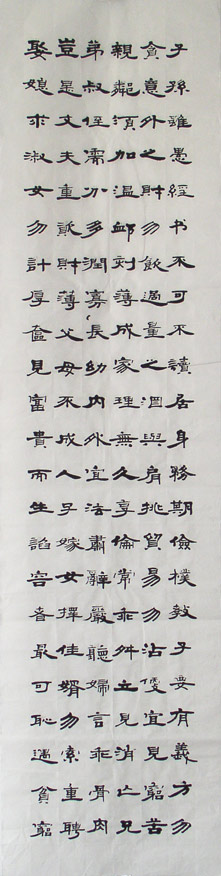 子孫雖愚經书不可不讀居身務期儉樸教子要有義方勿
貪意外之財勿飲過量之酒與肩挑貿易勿沾便宜見窮苦
親鄰須加温卹刻薄成家理無久享倫常乖舛立見消亡兄
弟叔侄需分多潤寡長幼内外宜法肅辭嚴聽婦言乖骨肉
豈是丈夫重貲財薄父母不成人子嫁女擇佳婿勿索重聘
娶媳求淑女勿計厚奩見富貴而生諂容者最可恥遇貧窮